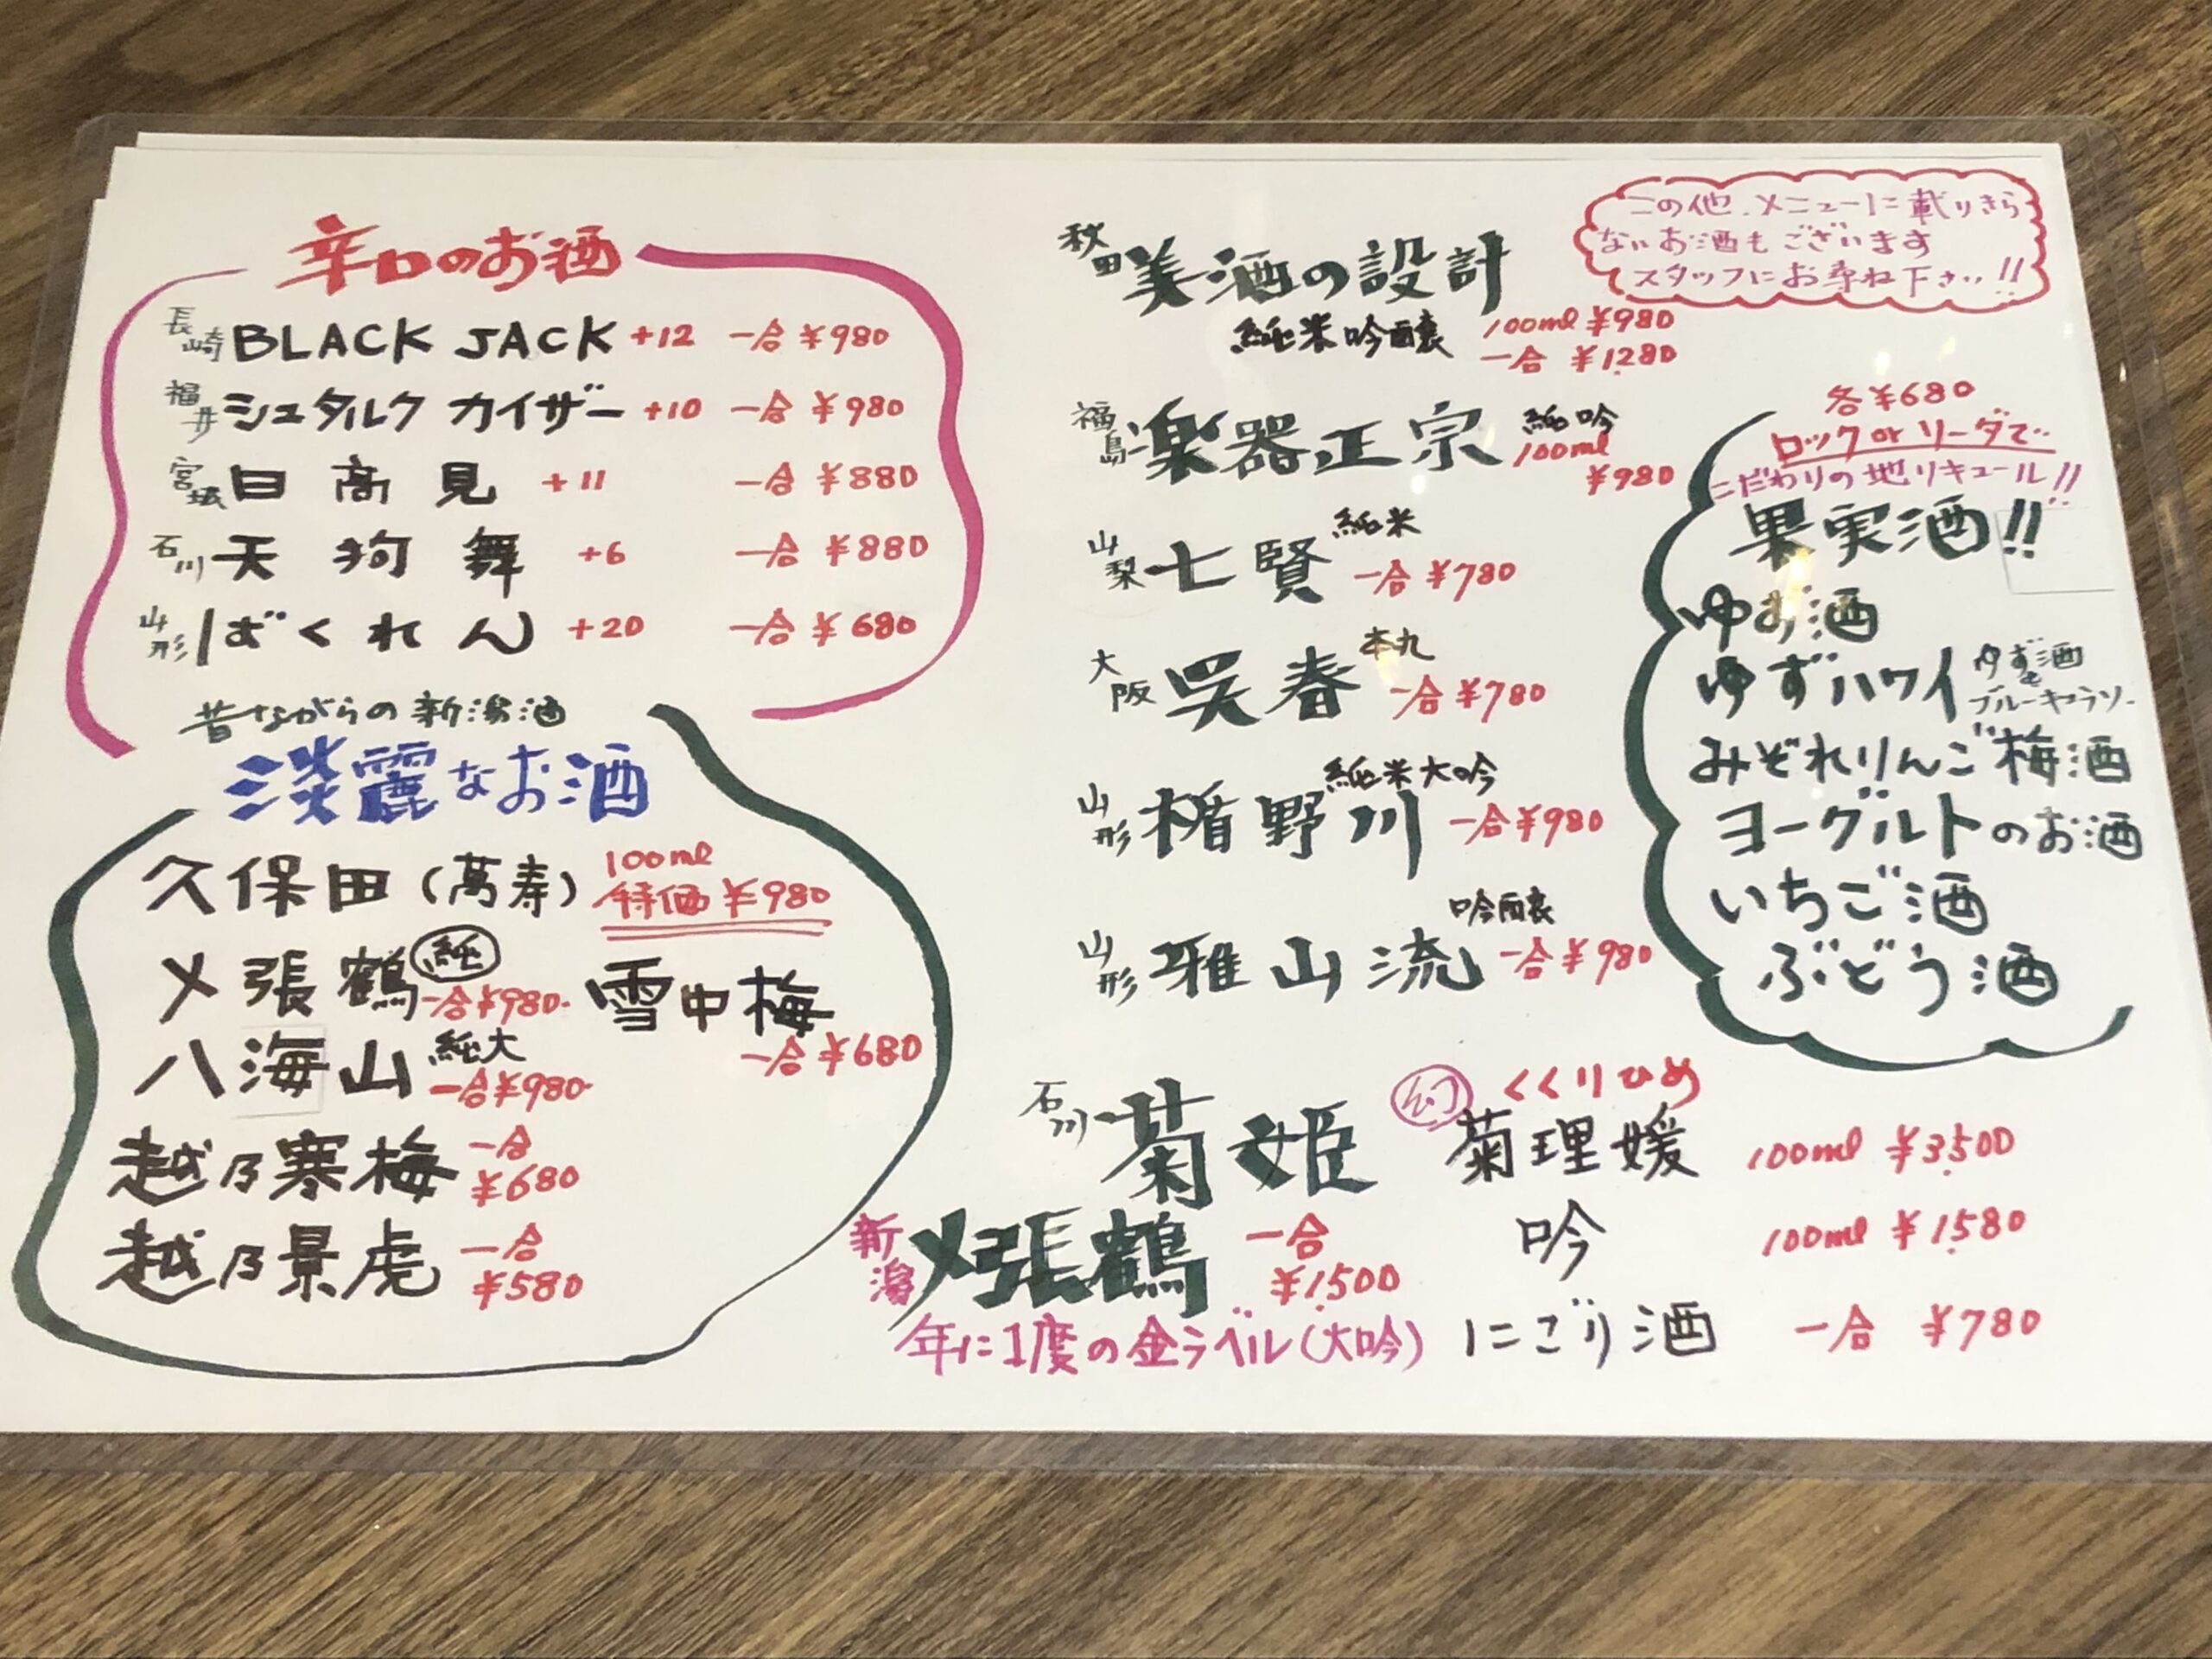 辛口のお酒
長崎 BLACK JACK +12 一合 ¥980
福井 シュタルク カイザー +10 一合 ¥980
宮城 日高見 +11 一合 ¥880
石川 天狗舞 +6 一合 ¥880
山形 ばくれん +20 一合 ¥680
昔ながらの新潟酒
淡麗なお酒
久保田(萬寿) 100ml 特価 ¥980
〆張鶴 純 一合¥980-
雪中梅 一合 ¥680
八海山 純大 一合¥980-
越乃寒梅 一合 ¥680
越乃景虎 一合 ¥580
秋田 美酒の設計
純米吟醸 100ml ¥980
一合 ¥1,280
福島 楽器正宗 純吟 100ml ¥980
山梨 七賢 純米 一合 ¥780
大阪 呉春 本丸 一合 ¥780
山形 楯野川 純米大吟 一合¥980
山形 雅山流 吟醸 一合¥980
この他、メニューに載りきら
ないお酒もございます
スタッフにお尋ね下さい!!
各¥680
ロック or ソーダで
こだわりの地リキュール!!
果実酒!!
ゆず酒
ゆずハワイ ゆず酒と ブルーキュラソー
みぞれりんご梅酒
ヨーグルトのお酒
いちご酒
ぶどう酒
石川 菊姫
幻 くくりひめ
菊理媛 100ml ¥3,500
吟 100ml ¥1,580
にごり酒 一合 ¥780
新潟 〆張鶴 一合 ¥1,500
年に1度の金ラベル(大吟)